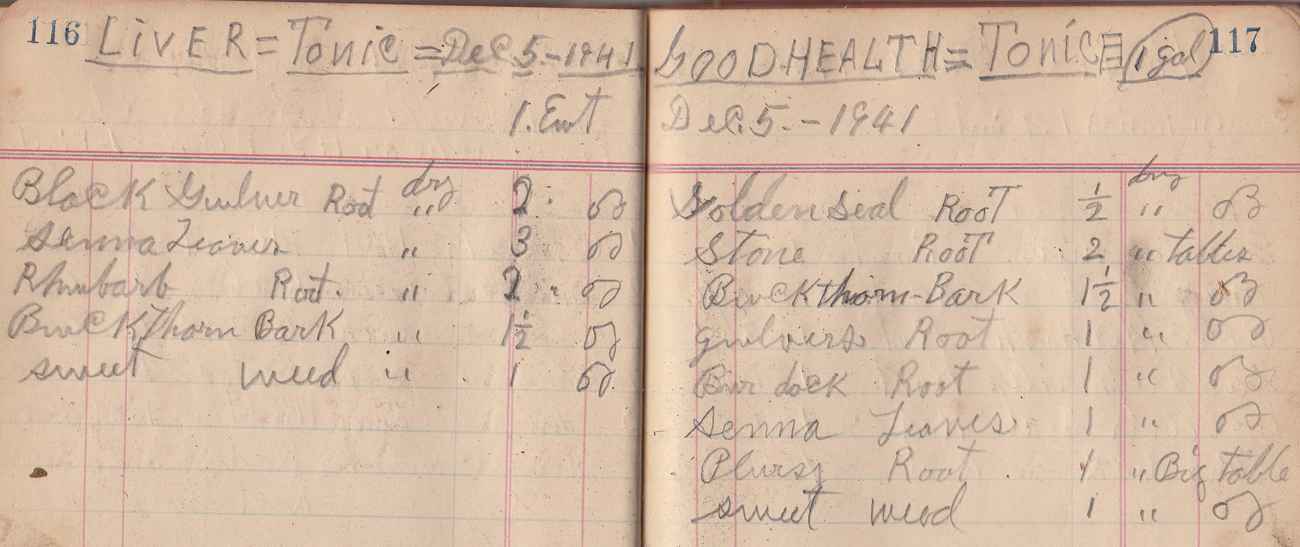 116
LIVER = TONIC = DEC 5 - 1941
1.
dry
Black Gulver Root " 2 oz
Senna Leaves " 3 oz
Rhubarb Root. " 2 " oz
Buckthorn Bark " 1½ oz
sweet weed " 1 oz
117
GOOD HEALTH = TONIC = 1 gal
Dec. 5. - 1941
dry
Golden Seal Root ½ " oz
Stone Root 2 " tables
Buckthorn-Bark 1½ " oz
gulvers Root 1 " oz
Burdock Root 1 " oz
Senna Leaves 1 " oz
Plursy Root 1 " Big table
sweet weed 1 " oz